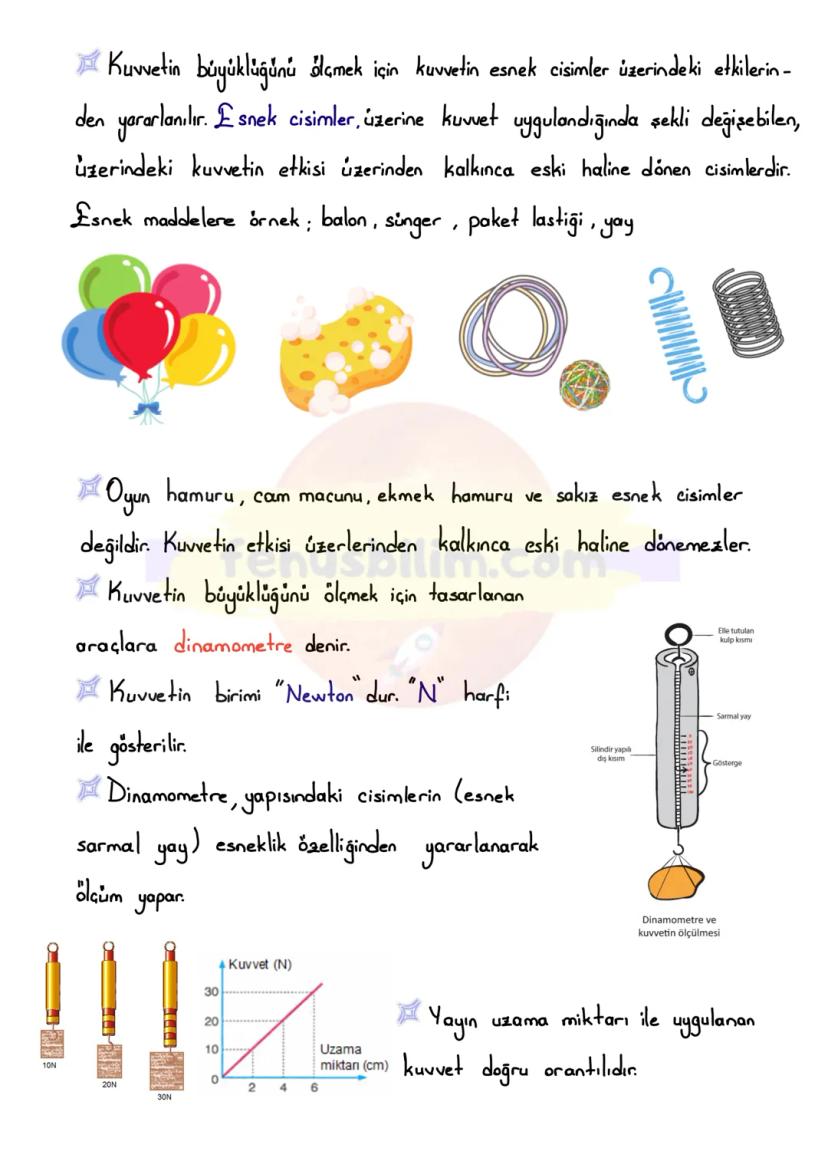 Kuvvetin büyüklüğünü ölçmek için kuvvetin esnek cisimler üzerindeki etkilerin-
den yararlanılır. Esnek cisimler, üzerine kuvvet uygulandığında şekli değişebilen,
üzerindeki kuvvetin etkisi üzerinden kalkınca eski haline dönen cisimlerdir.
Esnek maddelere örnek; balon, sünger, paket lastiği, yay
Oyun hamuru, cam macunu, ekmek hamuru ve sakız esnek cisimler
değildir. Kuvvetin etkisi üzerlerinden kalkınca eski haline dönemezler.
fenusbilim.com
Kuvvetin büyüklüğünü ölçmek için tasarlanan
araçlara dinamometre denir.
Kuvvetin birimi "Newton"dur. "N" harfi
ile gösterilir.
Dinamometre, yapısındaki cisimlerin (esnek
sarmal yay) esneklik özelliğinden yararlanarak
ölçüm yapar.
Elle tutulan
kulp kısmı
Sarmal yay
Silindir yapılı
dış kısım
Gösterge
Dinamometre ve
kuvvetin ölçülmesi
10N
20N
30N
Kuvvet (N)
30
20
10
0
2 4 6
Uzama
miktarı (cm)
Yayın uzama miktarı ile uygulanan
kuvvet doğru orantılıdır.